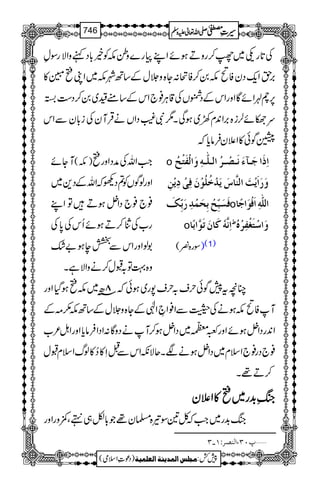 746 سیرتِ مصطفی صلی اللہ تعالیٰ علیہ وسلم
کی تاریکی میں چھپ کر روتے ہوئے اپنے پیارے وطن مکہ کو خیرباد کہنے والا رسولِ
برحق ایک دن فاتح مکہ بن کر فاتحانہ جاہ و جلال کے ساتھ شہر مکہ میں اپنی فتح مبین کا
پرچم لہرائے گا اور اس کے دشمنوں کی قاہر فوج اس کے سامنے قیدی بن کر دست بستہ
سر جھکائے لرزہ براندام کھڑی ہوگی۔ مگر نبی غیب داں نے قرآن کی زبان سے اس
پیشین گوئی کا اعلان فرمایا کہ
اِذَا جَآءَ نَصْرُ اللّٰهِ وَ الْفَتْحُ o
وَرَاَیْتَ النَّاسَ یَدْخُلُوْنَ فِیْ دِیْنِ
اللّٰهِ اَفْوَاجًا o فَسَبِّحْ بِحَمْدِ رَبِّکَ
وَاسْتَغْفِرْهُ ؕ اِنَّهٗ کَانَ تَوَّابًا o
(1) (سورہ نصر)
جب اللہ کی مدد اور فتح (مکہ) آ جائے
اور لوگوں کو تم دیکھو کہ اللہ کے دین میں
فوج فوج داخل ہوتے ہیں تو اپنے
رب کی ثنا کرتے ہوئے اس کی پاکی
بولو اور اس سے بخشش چاہو بے شک
وہ بہت توبہ قبول کرنے والا ہے۔
چنانچہ یہ پیش گوئی حرف بہ حرف پوری ہوئی کہ ۸ھ میں مکہ فتح ہو گیا اور
آپ فاتح مکہ ہونے کی حیثیت سے افواجِ الٰہی کے جاہ و جلال کے ساتھ مکہ مکرمہ کے
اندر داخل ہوئے اور کعبہ معظمہ میں داخل ہو کر آپ نے دوگانہ ادا فرمایا اور اہلِ عرب
فوج در فوج اسلام میں داخل ہونے لگے۔ حالانکہ اس سے قبل اِکّا دُکّا لوگ اسلام قبول
کرتے تھے۔
جنگ بدر میں فتح کا اعلان
جنگ بدر میں جب کہ کل تین سو تیرہ مسلمان تھے جو بالکل ہی نہتے، کمزور اور
۔۔۔پ۳۰، النصر: ۱۔۳
پیش کش: مجلس المدینۃ العلمیۃ (دعوتِ اسلامی)